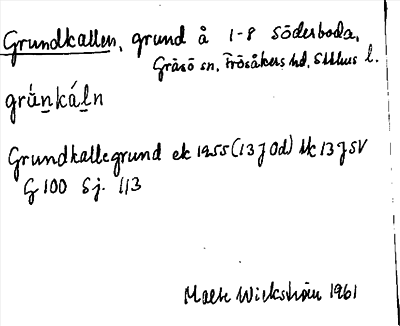 Grundkallen, grund å 1-8 Söderboda,
Gräsö sn, Frösåkers hd, Sthlms l.
grǘnkáln
Grundkallegrund ek 1955 (13 J 0d) Mc 13 J SV
G 100 Sj. 113
Malte Wickström 1961